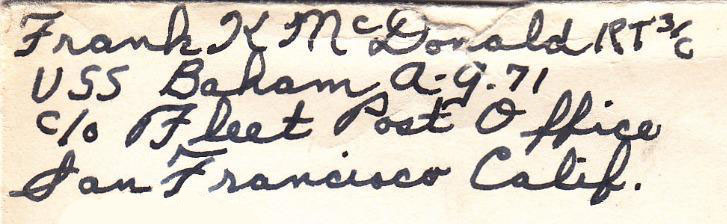 Frank K McDonald RT 3/c
USS Baham A-G. 71
c/o Fleet Post Office
San Francisco Calif.